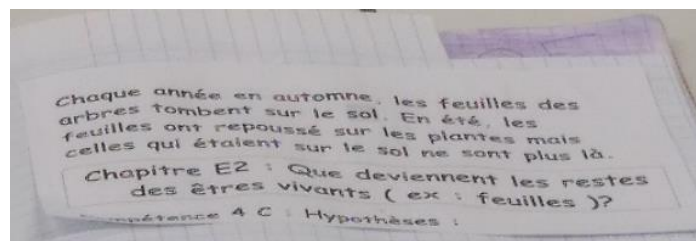 Chaque année en automne, les feuilles des
arbres tombent sur le sol. En été, les
feuilles ont repoussé sur les plantes mais
celles qui étaient sur le sol ne sont plus là.
Chapitre E2 : Que deviennent les restes
des êtres vivants ( ex : feuilles )?
4 C : Hypothèses :